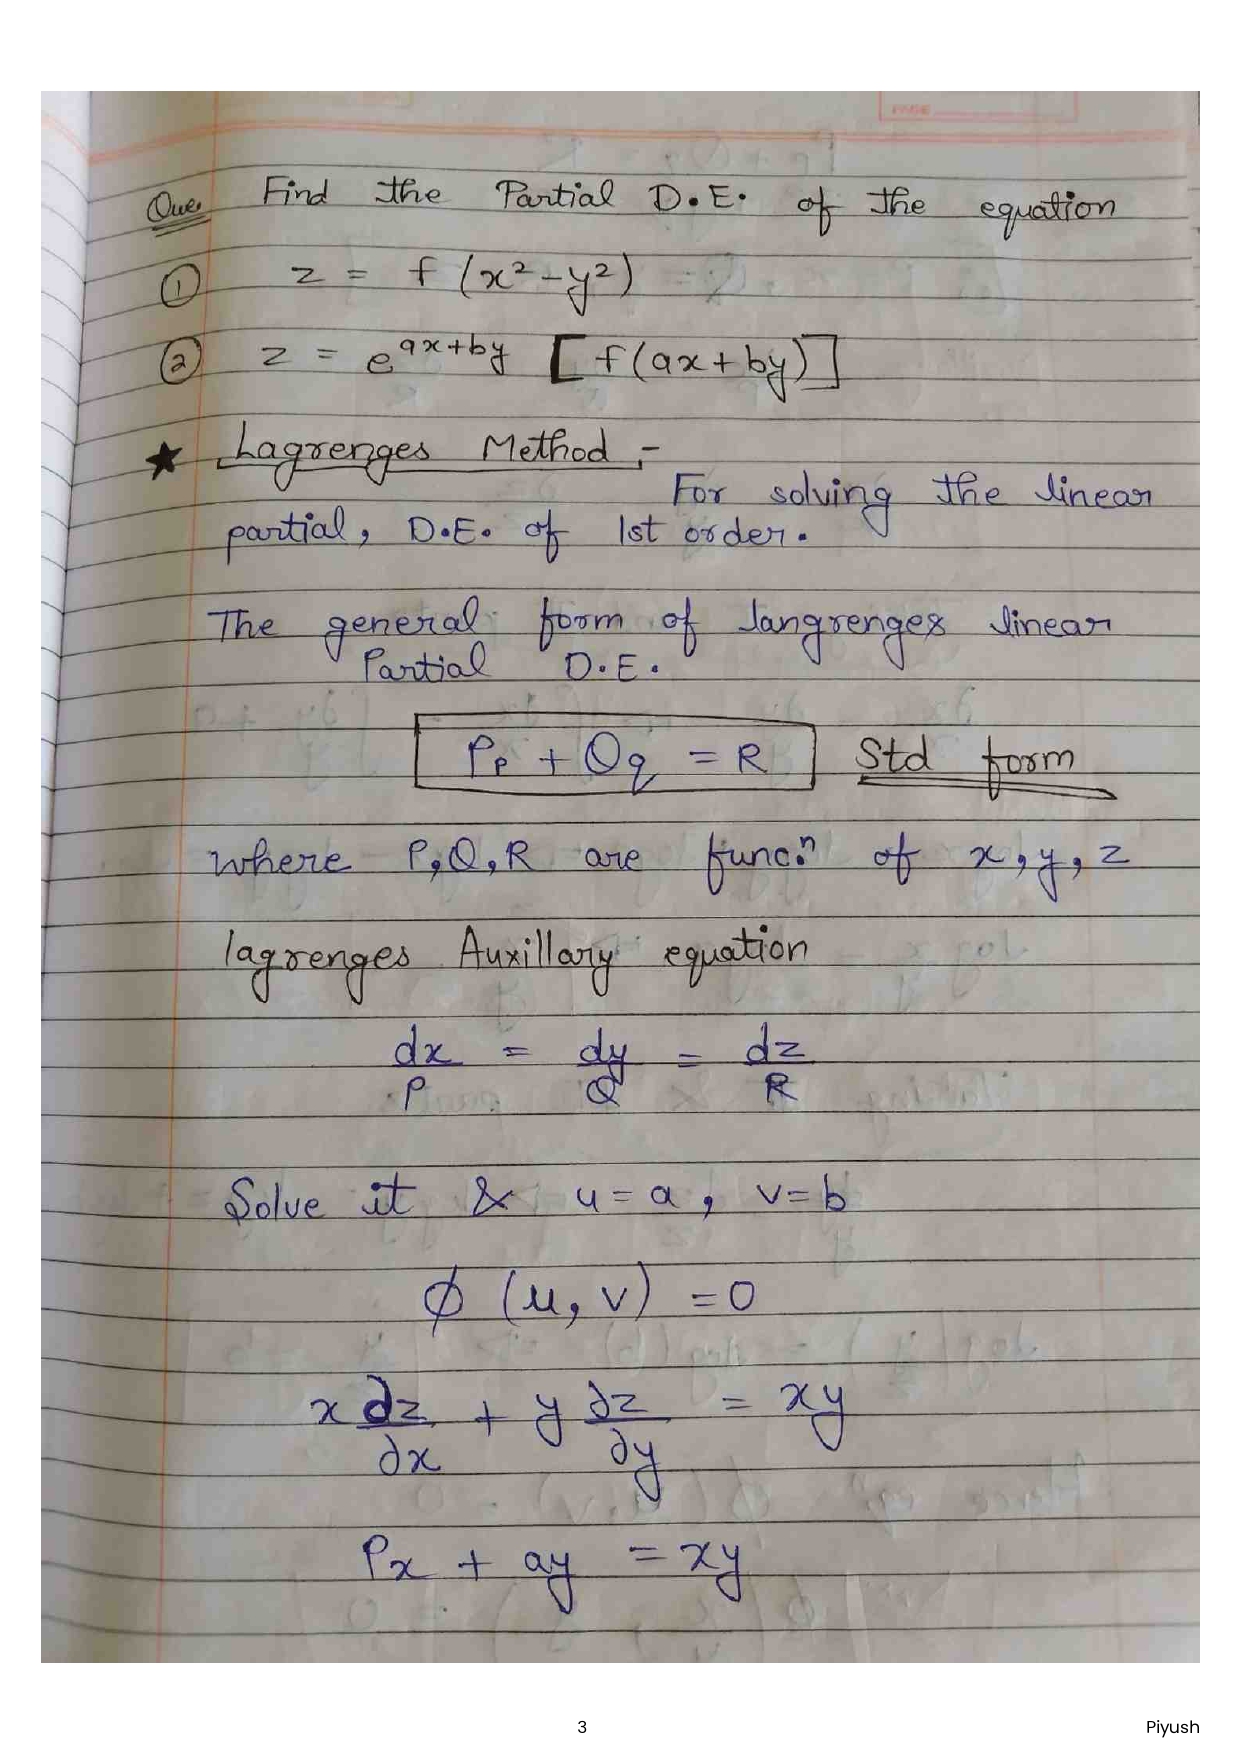 PAGE
Que. Find the Partial D.E. of the equation
① z = f (x² - y²)
② z = e^{ax+by} [f(ax+by)]
★ Lagrenges Method :-
For solving the linear
partial, D.E. of 1st order.
The general form of langrenges linear
Partial D.E.
Pp + Qq = R Std form
where P,Q,R are func.ⁿ of x,y,z
lagrenges Auxillary equation
dx/P = dy/Q = dz/R
Solve it & u=a, v=b
ϕ (u, v) = 0
x ∂z/∂x + y ∂z/∂y = xy
Px + ay = xy
3 Piyush